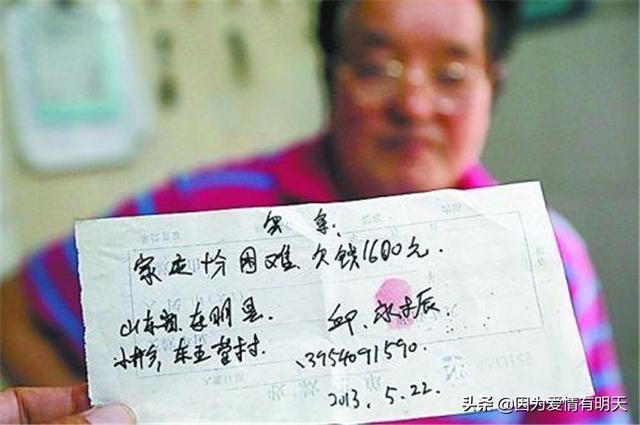 家庭份困难欠钱1600元.
山东省东明县. 邱永辰.
小井乡,东王营村. 13954091590.
2013.5.22.
头条 @因为爱情有明天